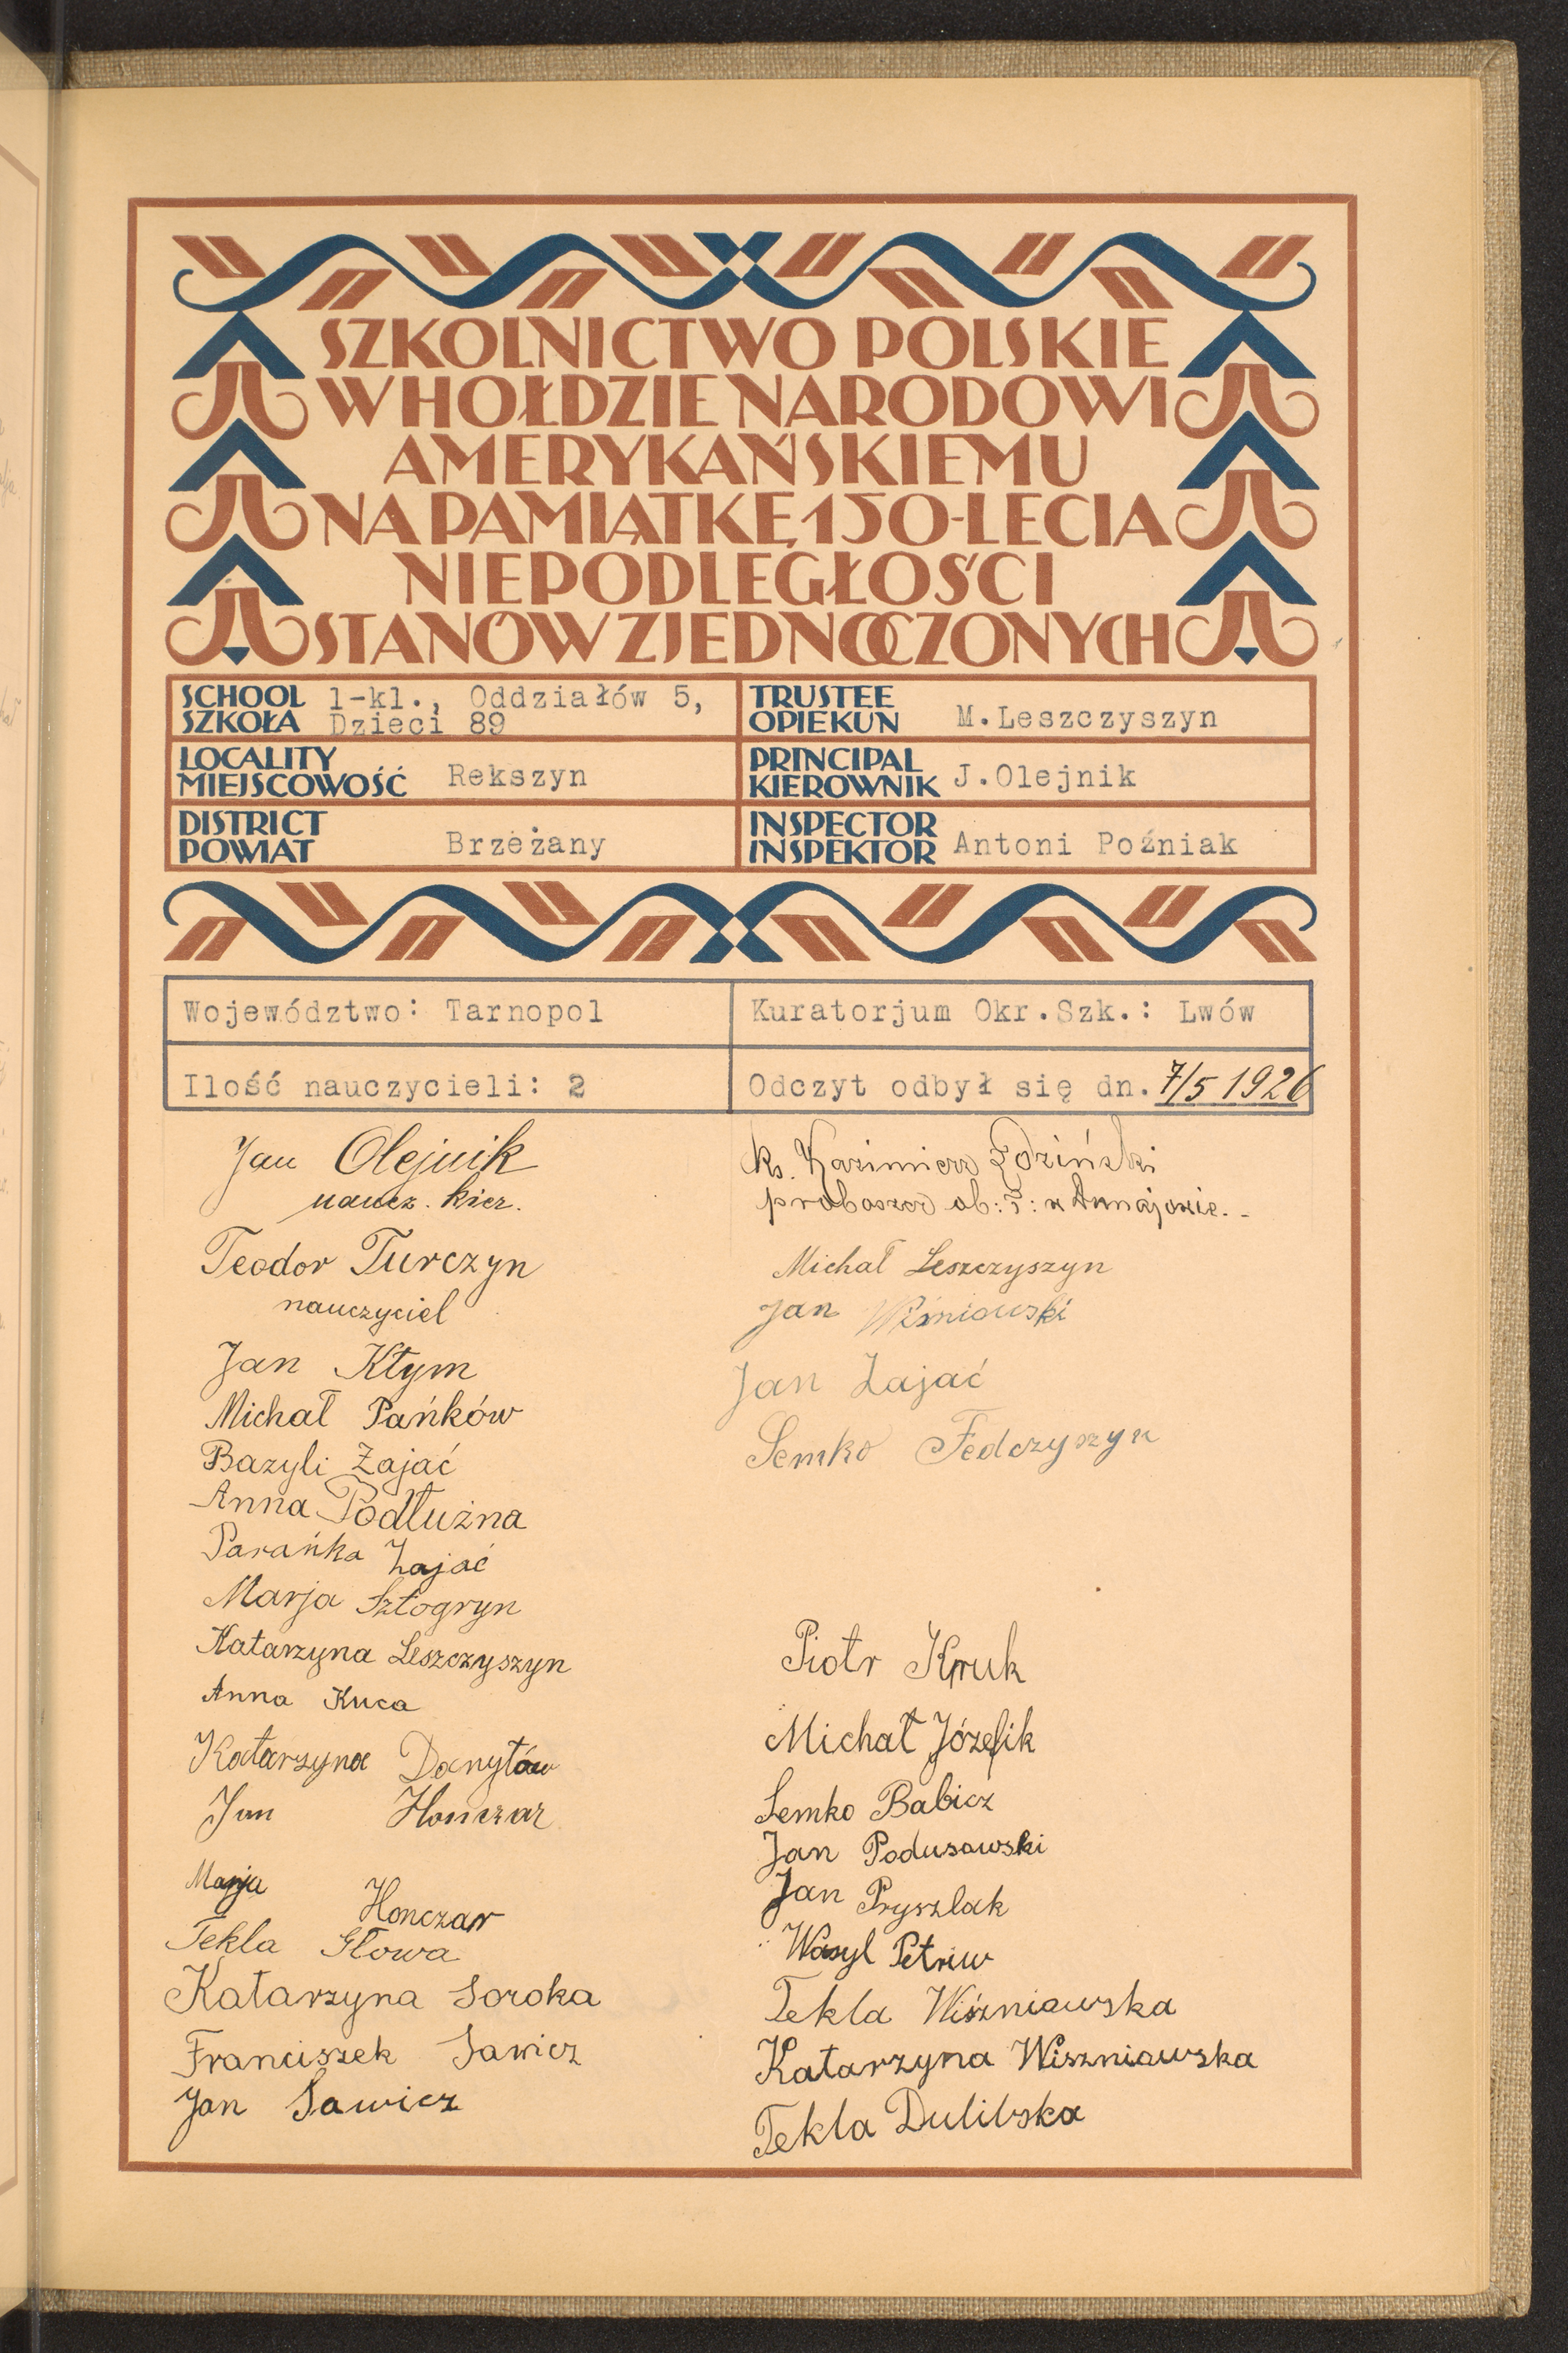 SZKOLNICTWO POLSKIE
W HOŁDZIE NARODOWI
AMERYKAŃSKIEMU
NA PAMIĄTKĘ 150-LECIA
NIEPODLEGŁOŚCI
STANÓW ZJEDNOCZONYCH
SCHOOL
SZKOŁA
1-kl., Oddziałów 5,
Dzieci 89
TRUSTEE
OPIEKUN
M.Leszczyszyn
LOCALITY
MIEJSCOWOŚĆ
Rekszyn
PRINCIPAL
KIEROWNIK
J.Olejnik
DISTRICT
POWIAT
Brzeżany
INSPECTOR
INSPEKTOR
Antoni Poźniak
Województwo: Tarnopol
Kuratorjum Okr.Szk.: Lwów
Ilość nauczycieli: 2
Odczyt odbył się dn. 7/5 1926
Jan Olejnik
naucz. kier.
Teodor Turczyn
nauczyciel
Jan Kłym
Michał Pańków
Bazyli Zajać
Anna Podłużna
Parańka Zajać
Marja Sztogryn
Katarzyna Leszczyszyn
Anna Kuca
Katarzyna Danyłów
Jan Honczar
Marja Honczar
Tekla Głowa
Katarzyna Soroka
Franciszek Sawicz
Jan Sawicz
ks. Kazimierz
proboszcz ob:
Michał Leszczyszyn
Jan Wiśniowski
Jan Zajać
Semko Fedczyszyn
Piotr Kruk
Michał Józefik
Semko Babicz
Jan Podusowski
Jan Pryszlak
Wasyl Petriw
Tekla Wiszniawska
Katarzyna Wiszniawska
Tekla Dulibska